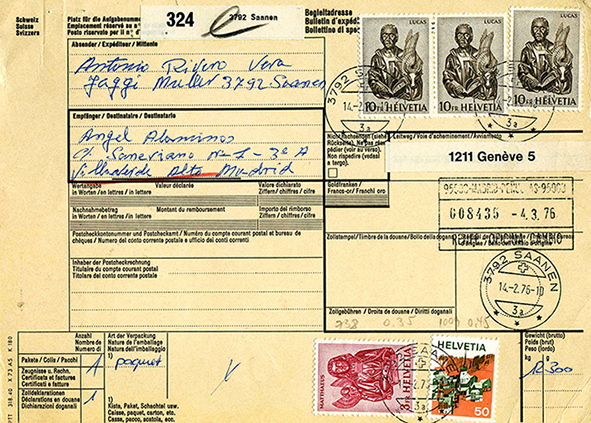 Schweiz
Suisse
Svizzera
Platz für die Aufgabenummer
Emplacement réservé au
Posto riservato per il n°
324
3792 Saanen
Begleitadresse
Bulletin d'expéd
Bollettino di spe
LUCAS
LUCAS
LUCAS
10 FR HELVETIA
10 FR HELVETIA
10 FR HELVETIA
3792 SAANEN
14.-2.76
3a
Absender / Expéditeur / Mittente
Antonio Rivero Vera
Jaggi Muller 3792 Saanen
Empfänger / Destinataire / Destinatario
Angel
C/ nº 1 - 3º A
Alto Madrid
Nichtzustellen
Rückseite). Ne pas ex-
pédier (voir au verso).
Non rispedire (vedasi
a tergo).
Leitweg / Voie d'acheminement / Avviamento
1211 Genève 5
Wertangabe
in Worten / en lettres / in lettere
Valeur déclarée
Valore dichiarato
Ziffern / chiffres / cifre
Nachnahmebetrag
in Worten / en lettres / in lettere
Montant du remboursement
Importo del rimborso
Ziffern / chiffres / cifre
Goldfranken /
Francs-or / Franchi oro
Postcheckkontonummer und Postcheckamt / Numéro du compte courant postal et bureau de
chèques / Numero del conto corrente postale e ufficio dei conti correnti
Inhaber der Postcheckrechnung
Titulaire du compte courant postal
Titolare del conto corrente postale
Zollstempel / Timbre de la douane / Bollo della dogana
008435 - 4.3.76
3792 SAANEN
14.-2.76-10
3a
Zollgebühren / Droits de douane / Diritti doganali
0.35
0.45
Anzahl
Nombre
Numero di
Art der Verpackung
Nature de l'emballage
Natura dell'imballaggio
Pakete / Colis / Pacchi
1
paquet
Zeugnisse u. Rechn.
Certificats et factures
Certificati e fatture
Zolldeklarationen
Déclarations en douane
Dichiarazioni doganali
1
Kiste, Paket, Schachtel usw.
Caisse, paquet, carton, etc.
Cassa, pacco, scatola, ecc.
MATTHAEUS
3 FR HELVETIA
HELVETIA
50
Gewicht (brutto)
Poids (brut)
Peso (lordo)
kg
12500